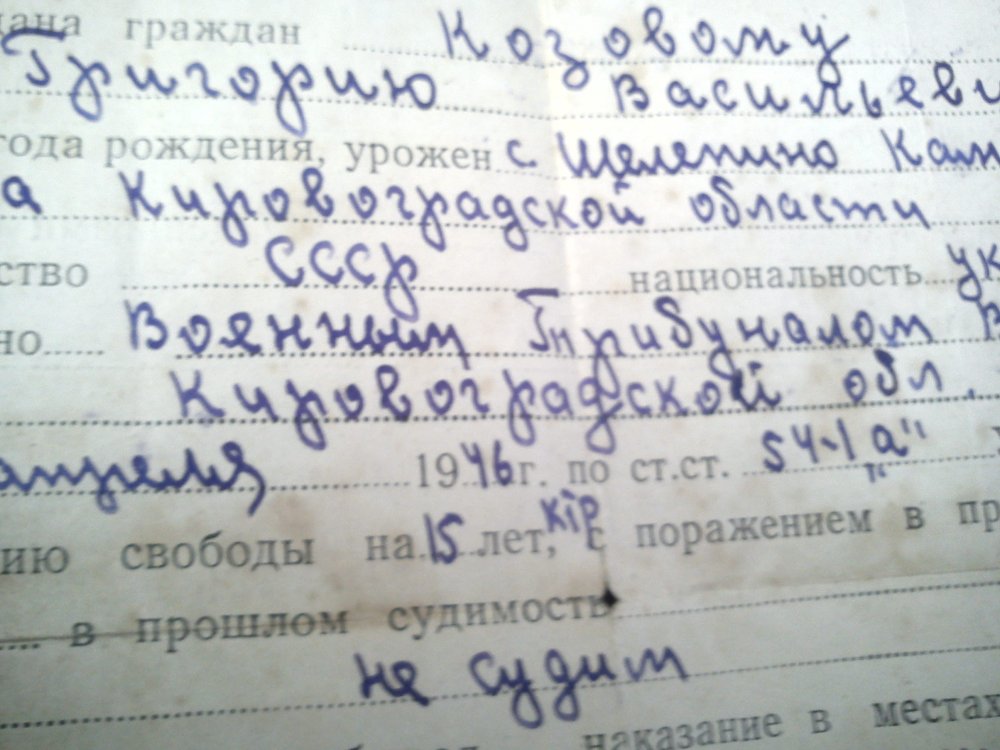 дана граждан Козовому
Григорию Васильеви
года рождения, урожен с. Щелепино Кам
а Кировоградской области
ство СССР национальность ук
но Военным Трибуналом В
Кировоградской обл.
апреля 1946 г. по ст.ст. 54-1 „а“
ию свободы на 15 лет, ктр с поражением в пр
в прошлом судимость
не судим
наказание в местах